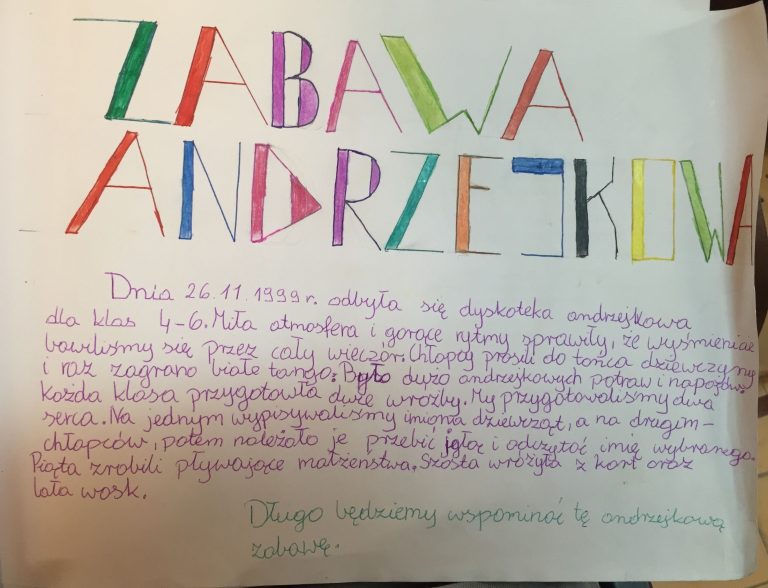 ZABAWA
ANDRZEJKOWA
Dnia 26.11.1999r. odbyła się dyskoteka andrzejkowa
dla klas 4-6. Miła atmosfera i gorące rytmy sprawiły, że wyśmienicie
bawiliśmy się przez cały wieczór. Chłopcy prosili do tańca dziewczyny
i raz zagrano białe tango. Było dużo andrzejkowych potraw i napojów.
Każda klasa przygotowła dwie wróżby. My przygotowaliśmy dwa
serca. Na jednym wypisywaliśmy imiona dziewcząt, a na drugim-
chłopców, potem należało je przebić igłą i odczytać imię wybranego.
Piąta zrobili pływające małżeństwa. Szósta wróżyła z kart oraz
lała wosk.
Długo będziemy wspominać tę andrzejkową
zabawę.